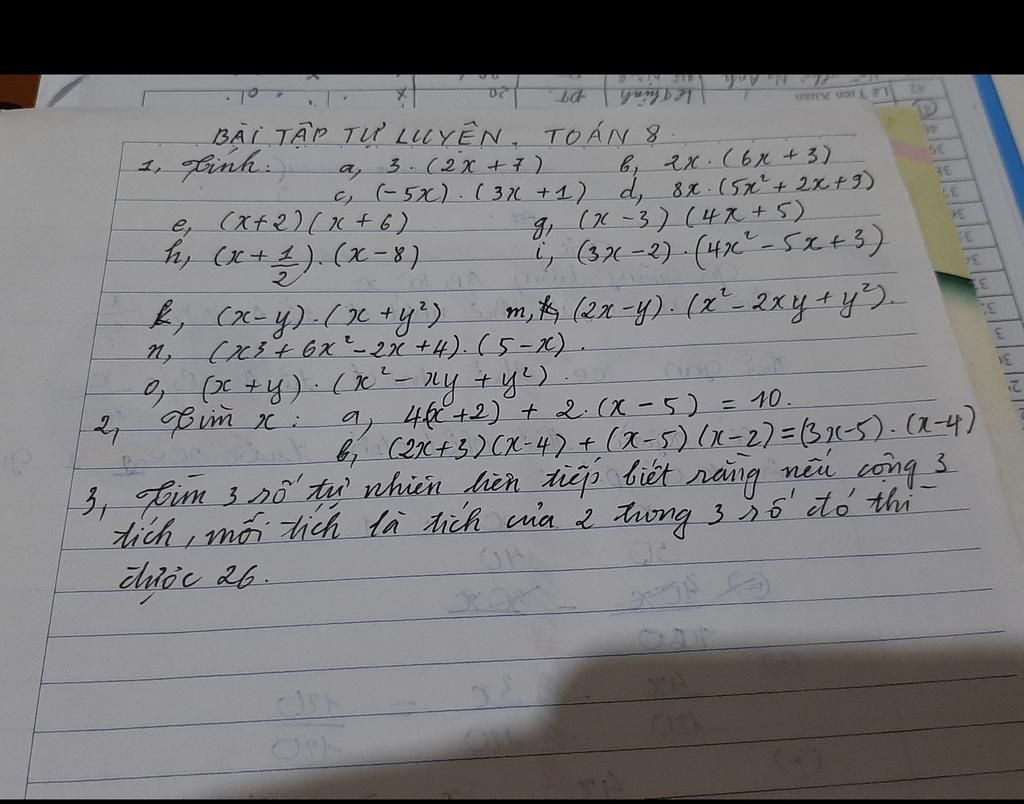 Lê Tiến Xuân
42
Lê Thành
ĐT.
20
x
BÀI TẬP TỰ LUYỆN. TOÁN 8.
1, Tính: a, 3.(2x+7) b, 2x.(6x+3)
c, (-5x).(3x+1) d, 8x.(5x²+2x+9)
e, (x+2)(x+6) g, (x-3)(4x+5)
h, (x+1/2).(x-8) i, (3x-2).(4x²-5x+3)
k, (x-y).(x+y²) m, (2x-y).(x²-2xy+y²).
n, (x3+6x²-2x+4).(5-x).
o, (x+y).(x²-xy+y²).
2, Tìm x: a, 4(x+2)+2.(x-5)=10.
b, (2x+3)(x-4)+(x-5)(x-2)=(3x-5).(x-4)
3, Tìm 3 số tự nhiên liên tiếp biết rằng nếu cộng 3
tích, mỗi tích là tích của 2 trong 3 số đó thì
được 26.